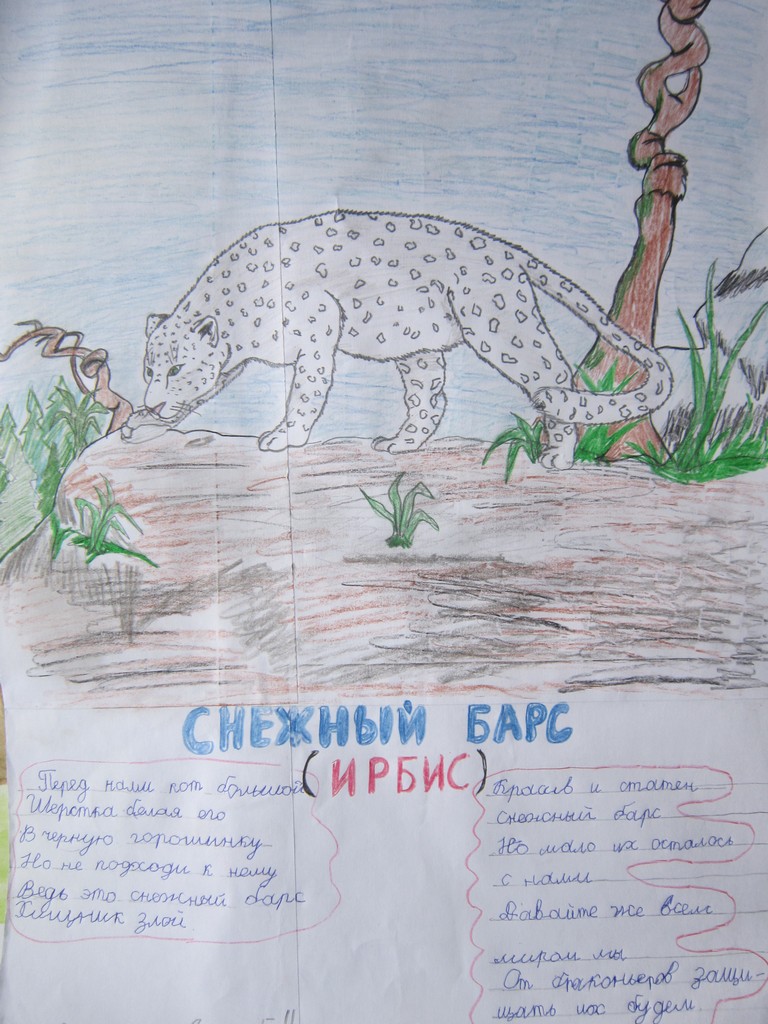 СНЕЖНЫЙ БАРС
(ИРБИС)
Перед нами кот большой
Шерстка белая его
В черную горошинку
Но не подходи к нему
Ведь это снежный барс
Хищник злой.
Красив и статен
снежный барс
Но мало их осталось
с нами
Давайте же всем
миром мы
От браконьеров защи-
щать их будем.